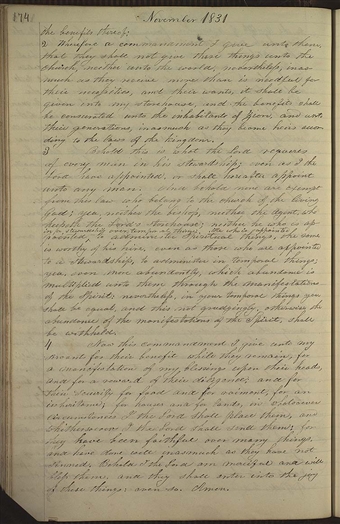 174
November 1831
the benefits thereof;
2 Wherefore a commandment I give unto them,
that they shall not give these things unto the
church, neither unto the world, nevertheless, inas-
much as they receive more than is needful for
their necessities, and their wants, it shall be
given into my storehouse, and the benefits shall
be consecrated unto the inhabitants of Zion, and unto
their generations, inasmuch as they become heirs accor-
ding to the laws of the kingdom.
3 Behold this is what the Lord requires
of every man in his stewardship; even as I the
Lord have appointed, or shall hereafter appoint
unto any man. And behold none are exempt
from this law who belong to the church of the living
God; yea, neither the bishop, neither the agent, who
keepeth the Lord's storehouse; neither he who is ap-
pointed in a stewardship over temporal things; he who is appointed
to administer spiritual things, the same
is worthy of his hire, even as those who are appointed
to a stewardship, to administer in temporal things;
yea, even more abundantly, which abundance is
multiplied unto them through the manifestations
of the Spirit; nevertheless, in your temporal things you
shall be equal, and this not grudgingly, otherwise the
abundance of the manifestations of the Spirit, shall
be withheld.
4 Now this commandment I give unto my
servants for their benefit while they remain, for
a manifestation of my blessings upon their heads,
and for a reward of their diligence; and for
their security for food and for raiment; for an
inheritance; for houses and for lands, in whatsoever
circumstances I the Lord shall place them, and
whithersoever I the Lord shall send them; for
they have been faithful over many things,
and have done well inasmuch as they have not
sinned. Behold I the Lord am merciful and will
bless them, and they shall enter into the joy
of these things: even so. Amen.